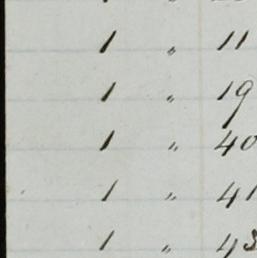 1 " 11
1 " 19
1 " 40
1 " 41
1 " 43